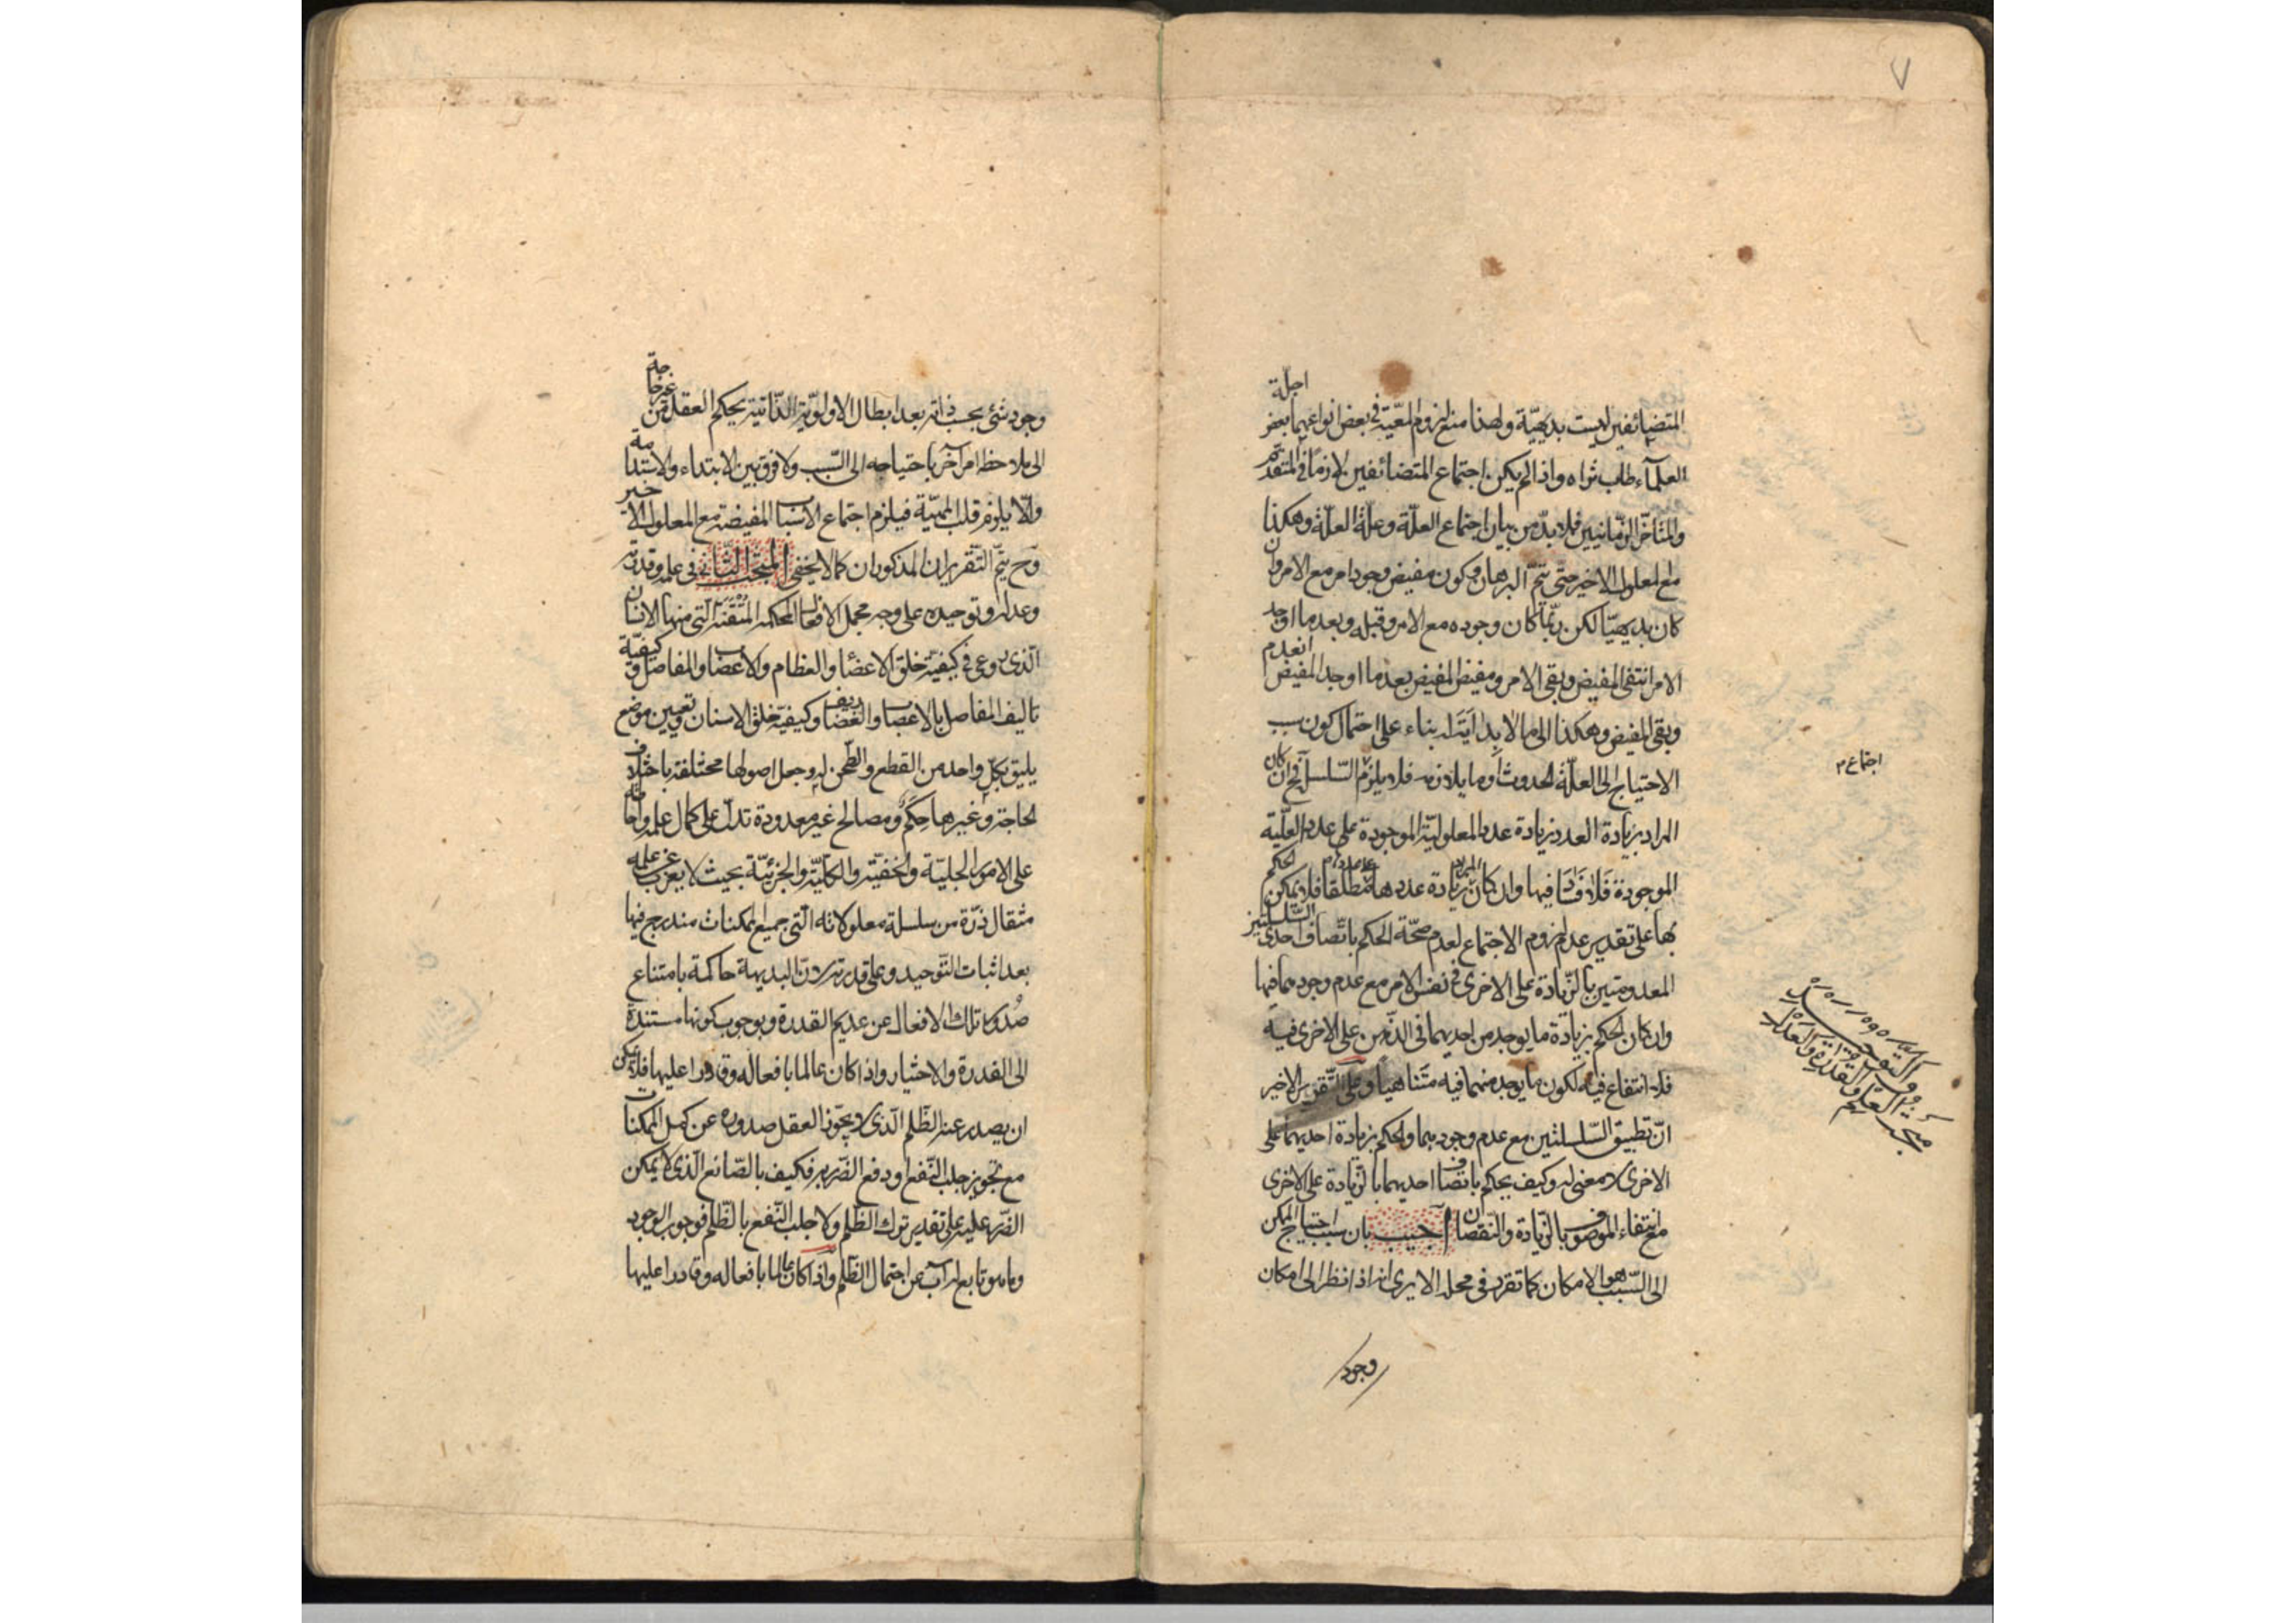 ٧
المتضائفين ليست بديهيّة ولهذا منع لزوم المعيّة في بعض انواعهما بعض اجلّة
العلمآء طاب ثراه واذا لم يكن اجتماع المتضائفين لازما في المتقدّم
والمتاخّر الزّمانيين فلا بدّ من بيان اجتماع العلّة وعلّة العلّة وهكذا
مع المعلول الاخير حتى يتمّ البرهان وكون مفيض وجود امر مع الامر وان
كان بديهيّا لكن ربّما كان وجوده مع الامر وقبله وبعد ما اوجد
الامر انتفى المفيض وبقى الامر ومفيض المفيض بعد ما اوجد المفيض انعدم
وبقى المفيض وهكذا الى ما لا بداية له بناء على احتمال كون سبب
الاحتياج الى العلّة الحدوث او ما يلازمه فلا يلزم التسلسل ح ان كان
المراد بزيادة العدد زيادة عدد المعلوليّة الموجودة على عدد العلّية
الموجودة فلا فيها وان كان المراد زيادة عددها مطلقا فلا يمكن الحكم
بها على تقدير عدم لزوم الاجتماع لعدم صحّة الحكم باتّصاف احدى السّلسلتين
المعدومتين بالزّيادة على الاخرى في نفس الامر مع عدم وجودهما فيها
وان كان الحكم بزيادة ما يوجد من احديهما في الذّهن على الاخرى فيه
فلا انتفاع فيه لكون ما يوجد منهما فيه متناهيا وعلى التّقرير الاخير
انّ تطبيق السّلسلتين مع عدم وجودهما والحكم بزيادة احديهما على
الاخرى لا معنى له وكيف يحكم باتّصاف احديهما بالزّيادة على الاخرى
مع انتفاء الموصوف بالزّيادة والنّقصان اجيب بان سبب احتياج الممكن
الى السّبب هو الامكان كما تقرر في محله الا يرى انه اذا نظر الى امكان
وجود
اجتماع م
مبحث العلم والقدرة والعدل
وجود شئ بحسب ذاته بعد ابطال الاولويّة الذّاتية يحكم العقل من غير حاجة
الى ملاحظة امر آخر باحتياجه الى السّبب ولا فرق بين الابتداء والاستدامة
والّا يلزم قلب المهيّة فيلزم اجتماع الاسباب المفيضة مع المعلول الاخير
وح يتمّ التّقريران المذكوران كما لا يخفى المبحث الثّاني في علمه وقدرته
وعدله وتوحيده على وجه مجمل الافعال المحكمة المتقنة الّتي منها الانسان
الّذى روعى في كيفيّة خلق الاعضاء والعظام والاعصاب والمفاصل وكيفيّة
تاليف المفاصل بالاعصاب والغضاريف وكيفيّة خلق الاسنان وتعيين موضع
يليق بكلّ واحد من القطع والطّحن له وجعل اصولها مختلفة باختلاف
الحاجة وغيرها حِكَم ومصالح غير معدودة تدلّ على كمال علمه واحاطته
على الامور الجليّة والخفيّة والكليّة والجزئيّة بحيث لا يعزب عن علمه
مثقال ذرّة من سلسلة معلولاته الّتي جميع الممكنات مندرج فيها
بعد اثبات التّوحيد وعلى قدرته لانّ البديهة حاكمة بامتناع
صُدور تلك الافعال عن عديم القدرة وبوجوب كونها مستندة
الى القدرة والاختيار واذا كان عالما بافعاله وقادرا عليها فلا يمكن
ان يصدر عنه الظّلم الّذى لا يجّوز العقل صدوره عن كمل الممكنات
مع تجويز جلب النّفع او دفع الضّرر به فكيف بالصّانع الّذى لا يمكن
الضّرر عليه على تقدير ترك الظّلم ولا جلب النّفع بالظّلم فوجوب الوجود
وما هو تابع له آب عن احتمال الظّلم واذا كان عالما بافعاله وقادرا عليها